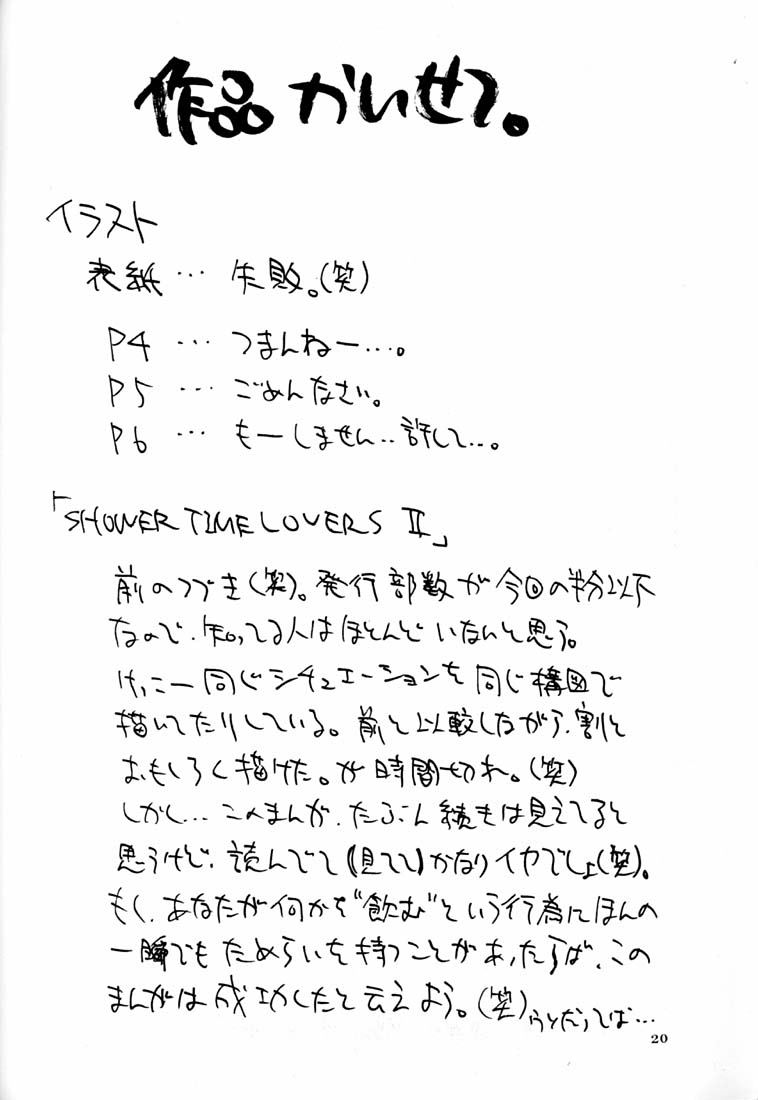 作品かいせつ。
イラスト
表紙… 失敗。(笑)
P4 … つまんねー…。
P5 … ごめんなさい。
P6 … もーしません..許して...。
「SHOWER TIME LOVERS Ⅱ」
前のつづき(笑)。発行部数が今回の半分以下
なので、知ってる人はほとんどいないと思う。
けっこー同じシチュエーションを同じ構図で
描いてたりしている。前と比較しながら、割と
おもしろく描けた。が時間切れ。(笑)
しかし…このまんが、たぶん続きは見えてると
思うけど、読んでて(見てて)かなりイヤでしょ(笑)。
もし、あなたが何かを“飲む”という行為にほんの
一瞬でもためらいを持つことがあったらば、この
まんがは成功したと云えよう。(笑)うそだってば…
20